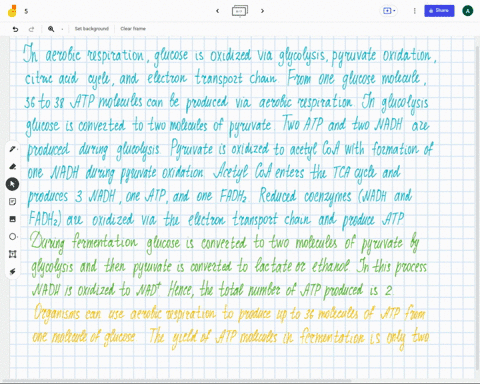 5
Share
A
Set background
Clear frame
In aerobic respiration, glucose is oxidized via glycolysis, pyruvate oxidation,
citric acid cycle, and electron transport chain From one glucose molecule,
36 to 38 ATP molecules can be produced via aerobic respiration In glycolysis
glucose is converted to two molecules of pyruvate Two ATP and two NADH are
produced during glycolysis Pyruvate is oxidized to acetyl CoA with formation of
one NADH during pyruvate oxidation Acetyl CoA enters the TCA cycle and
produces 3 NADH, one ATP, and one FADH₂ Reduced coenzymes (NADH and
FADH₂) are oxidized via the electron transport chain and produce ATP
During fermentation glucose is converted to two molecules of pyruvate by
glycolysis and then pyruvate is converted to lactate or ethanol In this process
NADH is oxidized to NAD⁺ Hence, the total number of ATP produced is 2
Organisms can use aerobic respiration to produce up to 36 molecules of ATP from
one molecule of glucose The yield of ATP molecules in fermentation is only two